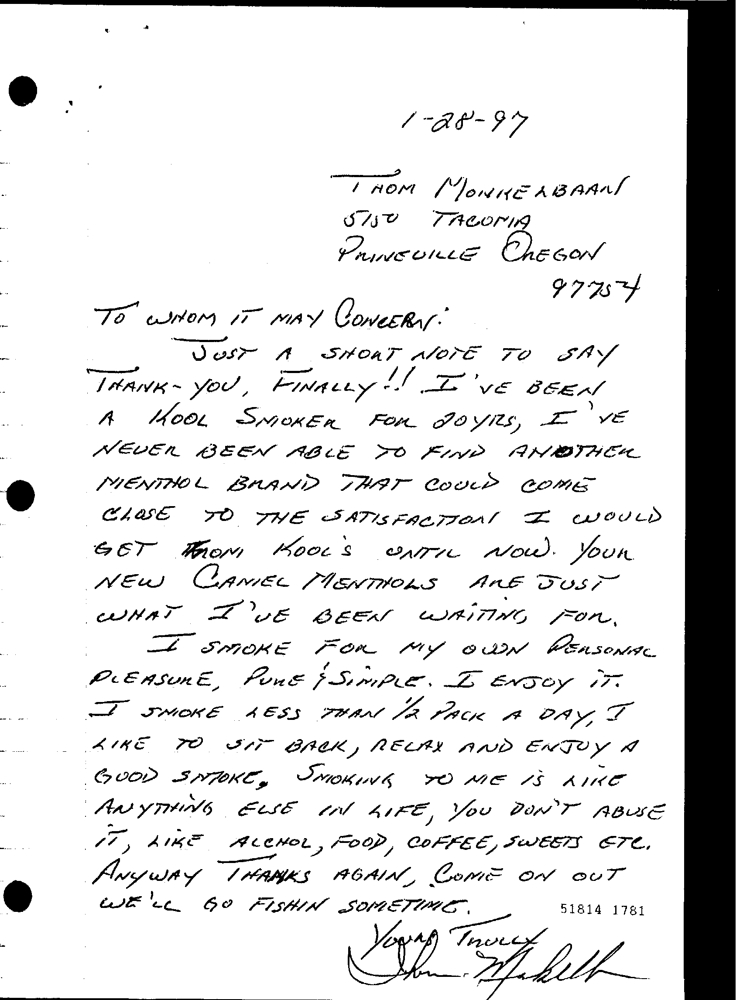 1-28-97
THOM MONKELBAAN
5150 TACOMA
PRINEVILLE OREGON
97754
TO WHOM IT MAY CONCERN:
JUST A SHORT NOTE TO SAY
THANK-YOU, FINALLY!! I'VE BEEN
A KOOL SMOKER FOR 20YRS, I'VE
NEVER BEEN ABLE TO FIND ANOTHER
MENTHOL BRAND THAT COULD COME
CLOSE TO THE SATISFACTION I WOULD
GET FROM KOOL'S UNTIL NOW. YOUR
NEW CAMEL MENTHOLS ARE JUST
WHAT I'VE BEEN WAITING FOR.
I SMOKE FOR MY OWN PERSONAL
PLEASURE, PURE & SIMPLE. I ENJOY IT.
I SMOKE LESS THAN 1/2 PACK A DAY, I
LIKE TO SIT BACK, RELAX AND ENJOY A
GOOD SMOKE. SMOKING TO ME IS LIKE
ANYTHING ELSE IN LIFE, YOU DON'T ABUSE
IT, LIKE ALCHOL, FOOD, COFFEE, SWEETS ETC.
ANYWAY THANKS AGAIN, COME ON OUT
WE'LL GO FISHIN SOMETIME.
51814 1781
YOURS TRULY